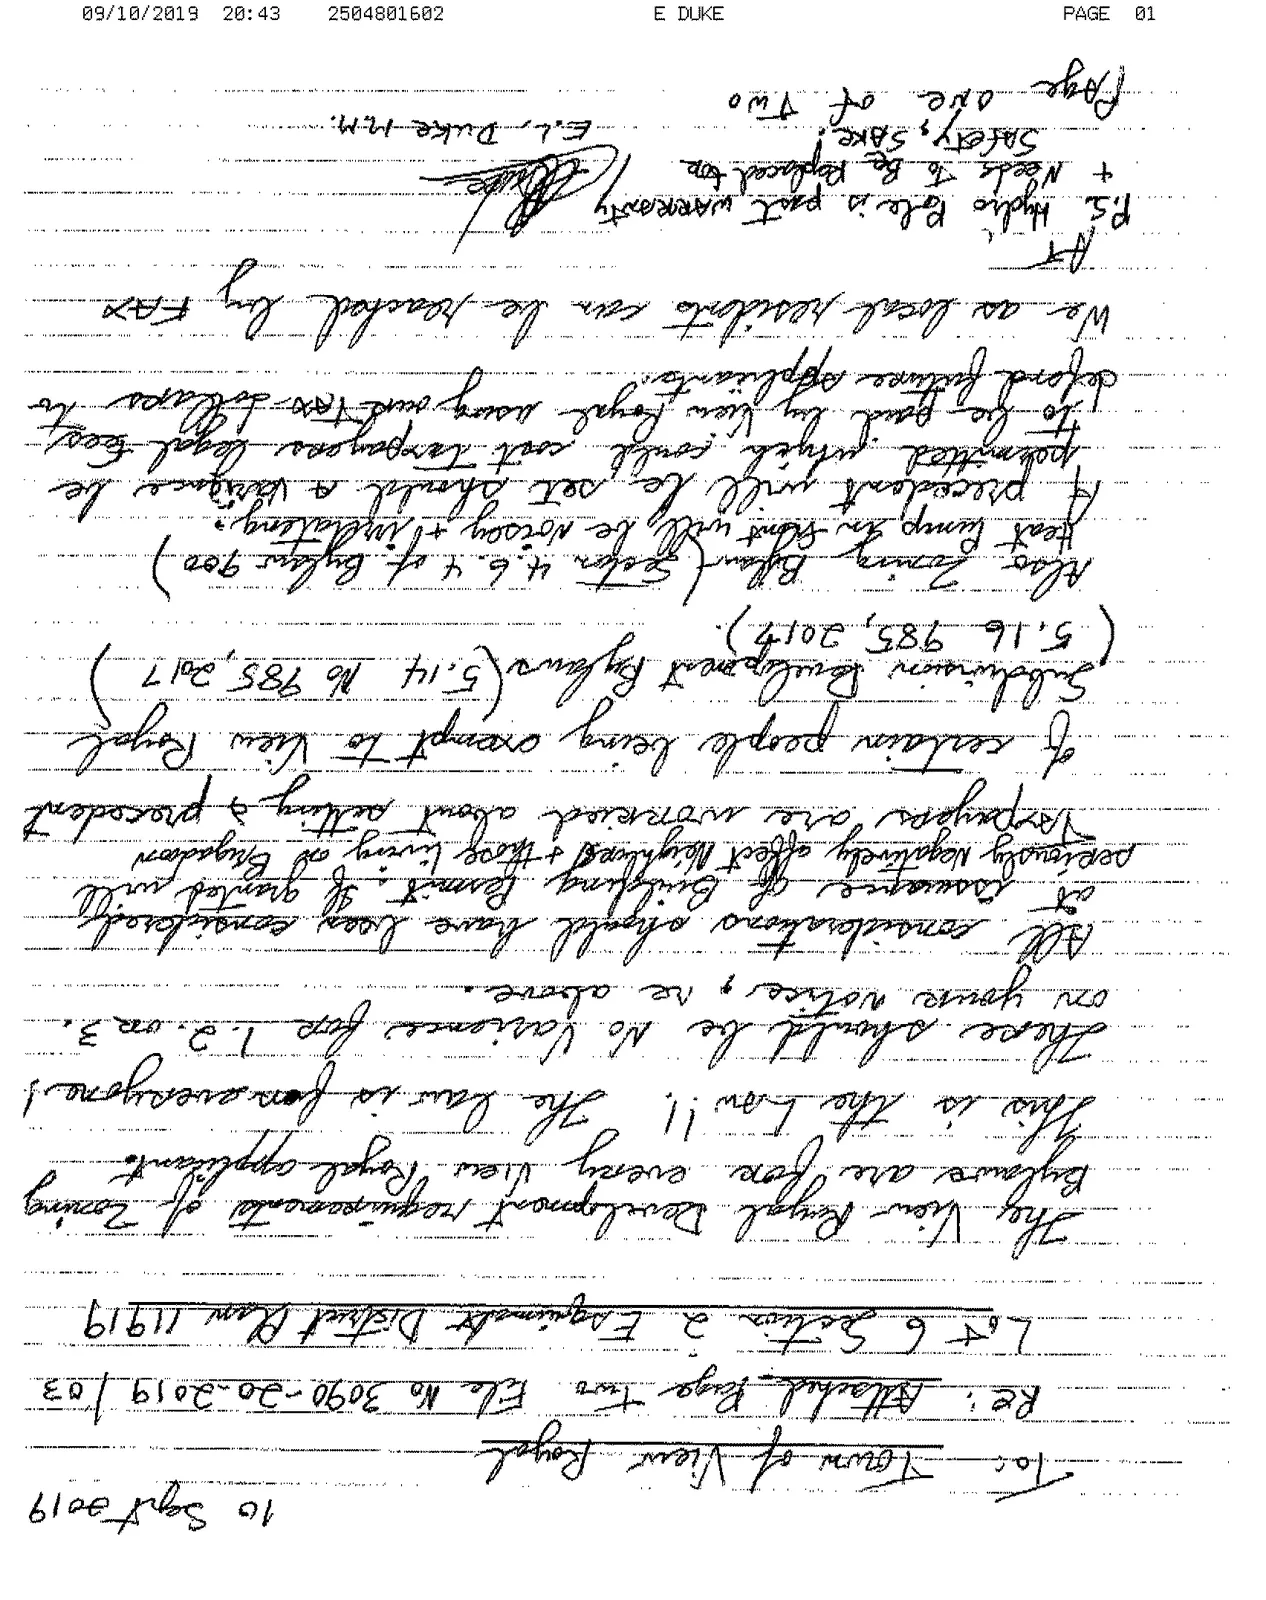 09/10/2019 20:43 2504801602 E DUKE PAGE 01
10 Sept 2019
To: Town of View Royal
Re: Attached Page Two File No 3090-20-2019/03
Lot 6 Section 2 Esquimalt District Plan 11919
The View Royal Development requirements of Zoning
Bylaws are for every View Royal applicant.
This is the Law!! The law is for everyone!
There should be No Variance for 1. 2. or 3.
on your notice, re above.
All considerations should have been considered
at issuance of Building Permit. If granted will
seriously Negatively affect Neighbors + those living on Brigadoon
Taxpayers are worried about setting a precedent
of certain people being exempt to View Royal
Subdivision Development Bylaws (5.14 No 985, 2017)
(5.16 985, 2017).
Also Zoning Bylaw (Section 4.6.4 of Bylaw 900)
Heat Pump in front will be Noisey +
A precedent will be set should a Variance be
permitted which could cost taxpayers legal fees,
to be paid by View Royal using our tax-dollars to
defend future applicants.
We as local residents can be reached by FAX
AT
P.S. Hydro Pole is past warranty
+ Needs to Be Replaced for
Safety, Sake!
E.L. Duke M.M.
Page one of Two